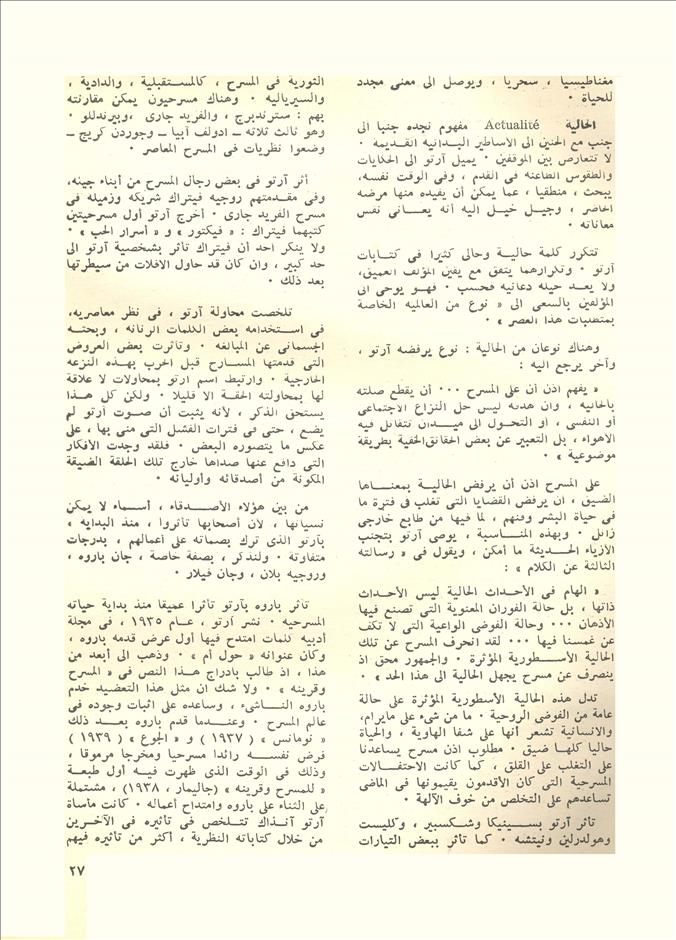 مغناطيسيا ، سحريا ، ويوصل الى معنى مجدد
للحياة ·
الحالية Actualité مفهوم نجده جنبا الى
جنب مع الحنين الى الأساطير البدائية القديمة ·
لا تتعارض بين الموقفين · يميل آرتو الى الحكايات
والطقوس الطاعنة فى القدم ، وفى الوقت نفسه،
يبحث ، منطقيا ، عما يمكن أن يفيده منها مرضه
الحاضر ، وجيل خيل اليه أنه يعانى نفس
معاناته ·
تتكرر كلمة حالية وحالى كثيرا فى كتابات
آرتو · وتكرارهما يتفق مع يقين المؤلف العميق،
ولا يعد حيلة دعائية فحسب · فهو يوحى الى
المؤلفين بالسعى الى « نوع من العالمية الخاصة
بمقتضيات هذا العصر » ·
وهناك نوعان من الحالية : نوع يرفضه آرتو ،
وآخر يرجع اليه :
« يفهم اذن أن على المسرح ··· أن يقطع صلته
بالحالية ، وان هدفه ليس حل النزاع الاجتماعى
أو النفسى ، أو التحول الى ميدان تتقاتل فيه
الأهواء ، بل التعبير عن بعض الحقائق الخفية بطريقة
موضوعية » ·
على المسرح اذن أن يرفض الحالية بمعناها
الضيق ، ان يرفض القضايا التى تغلب فى فترة ما
فى حياة البشر وفنهم ، لما فيها من طابع خارجى
زائل · وبهذه المناسبة ، يوصى آرتو بتجنب
الأزياء الحديثة ما أمكن ، ويقول فى « رسالته
الثالثة عن الكلام » :
« الهام فى الأحداث الحالية ليس الأحداث
ذاتها ، بل حالة الفوران المعنوية التى تصنع فيها
الأذهان ··· وحالة الفوضى الواعية التى لا تكف
عن غمسنا فيها ··· لقد انحرف المسرح عن تلك
الحالية الأسطورية المؤثرة · والجمهور محق اذ
ينصرف عن مسرح يجهل الحالية الى هذا الحد » ·
تدل هذه الحالية الأسطورية المؤثرة على حالة
عامة من الفوضى الروحية · ما من شىء على مايرام،
والانسانية تشعر أنها على شفا الهاوية ، والحياة
حاليا كلها ضيق · مطلوب اذن مسرح يساعدنا
على التغلب على القلق ، كما كانت الاحتفالات
المسرحية التى كان الأقدمون يقيمونها فى الماضى
تساعدهم على التخلص من خوف الآلهة ·
تأثر آرتو بسينيكا وشكسبير ، وكليست
وهولدرلين ونيتشه · كما تأثر ببعض التيارات
الثورية فى المسرح ، كالمستقبلية ، والدادية ،
والسيريالية · وهناك مسرحيون يمكن مقارنته
بهم : ستريندبرج ، والفريد جارى ،وبيرندللو ·
وهو ثالث ثلاثة – ادولف آبيا – وجوردن كريج –
وضعوا نظريات فى المسرح المعاصر ·
أثر آرتو فى بعض رجال المسرح من أبناء جيله،
وفى مقدمتهم روجيه فيتراك شريكه وزميله فى
مسرح الفريد جارى · أخرج آرتو أول مسرحيتين
كتبهما فيتراك : « فيكتور » و « أسرار الحب » ·
ولا ينكر احد أن فيتراك تأثر بشخصية آرتو الى
حد كبير ، وان كان قد حاول الافلات من سيطرتها
بعد ذلك ·
تلخصت محاولة آرتو ، فى نظر معاصريه،
فى استخدامه بعض الكلمات الرنانة ، وبحثه
الجسمانى عن المبالغة · وتأثرت بعض العروض
التى قدمتها المسارح قبل الحرب بهذه النزعة
الخارجية · وارتبط اسم آرتو بمحاولات لا علاقة
لها بمحاولته الحقة الا قليلا · ولكن كل هذا
يستحق الذكر ، لأنه يثبت أن صوت آرتو لم
يضع ، حتى فى فترات الفشل التى منى بها ، على
عكس ما يتصوره البعض · فلقد وجدت الأفكار
التى دافع عنها صداها خارج تلك الحلقة الضيقة
المكونة من أصدقائه وأوليائه ·
من بين هؤلاء الأصدقاء ، أسماء لا يمكن
نسيانها ، لأن أصحابها تأثروا ، منذ البداية ،
بآرتو الذى ترك بصماته على أعمالهم ، بدرجات
متفاوتة · ولنذكر ، بصفة خاصة ، جان باروه ،
وروجيه بلان ، وجان فيلار ·
تأثر باروه بآرتو تأثرا عميقا منذ بداية حياته
المسرحية · نشر آرتو ، عام ١٩٣٥ ، فى مجلة
أدبية كلمات امتدح فيها أول عرض قدمه باروه ،
وكان عنوانه « حول أم » · وذهب الى أبعد من
هذا ، اذ طالب بادراج هذا النص فى « المسرح
وقرينه » · ولا شك ان مثل هذا التعضيد خدم
باروه الناشىء ، وساعده على اثبات وجوده فى
عالم المسرح · وعندما قدم باروه بعد ذلك
« نومانس » ( ١٩٣٧ ) و « الجوع » ( ١٩٣٩ )
فرض نفسه رائدا مسرحيا ومخرجا مرموقا ،
وذلك فى الوقت الذى ظهرت فيه أول طبعة
« للمسرح وقرينه » (جاليمار ، ١٩٣٨) ، مشتملة
على الثناء على باروه وامتداح أعماله · كانت مأساة
آرتو آنذاك تتلخص فى تأثيره فى الآخرين
من خلال كتاباته النظرية ، أكثر من تأثيره فيهم
٢٧